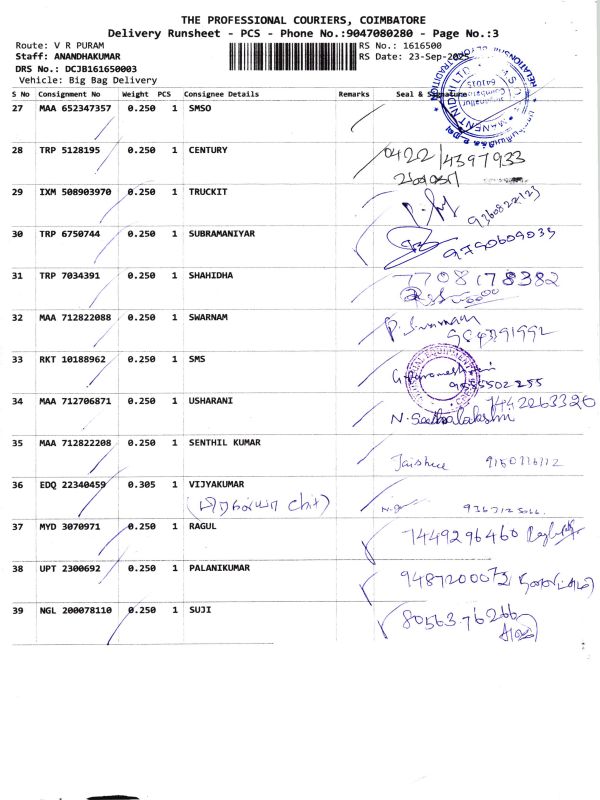 THE PROFESSIONAL COURIERS, COIMBATORE
Delivery Runsheet - PCS - Phone No.:9047080280 - Page No.:3
Route: V R PURAM RS No.: 1616500
Staff: ANANDHAKUMAR RS Date: 23-Sep-2025
DRS No.: DCJB161650003
Vehicle: Big Bag Delivery
S No Consignment No Weight PCS Consignee Details Remarks Seal & Signature
27 MAA 652347357 0.250 1 SMSO
28 TRP 5128195 0.250 1 CENTURY 0422/4397933
29 IXM 508903970 0.250 1 TRUCKIT 9360822123
30 TRP 6750744 0.250 1 SUBRAMANIYAR 9790609033
31 TRP 7034391 0.250 1 SHAHIDHA 7708178382
32 MAA 712822088 0.250 1 SWARNAM
33 RKT 10188962 0.250 1 SMS
34 MAA 712706871 0.250 1 USHARANI 7442263326
N. Seethalakshmi
35 MAA 712822208 0.250 1 SENTHIL KUMAR Jaishree
36 EDQ 22340459 0.305 1 VIJYAKUMAR
chit)
37 MYD 3070971 0.250 1 RAGUL 7449296460
38 UPT 2300692 0.250 1 PALANIKUMAR 9487200072
39 NGL 200078110 0.250 1 SUJI 8056376266